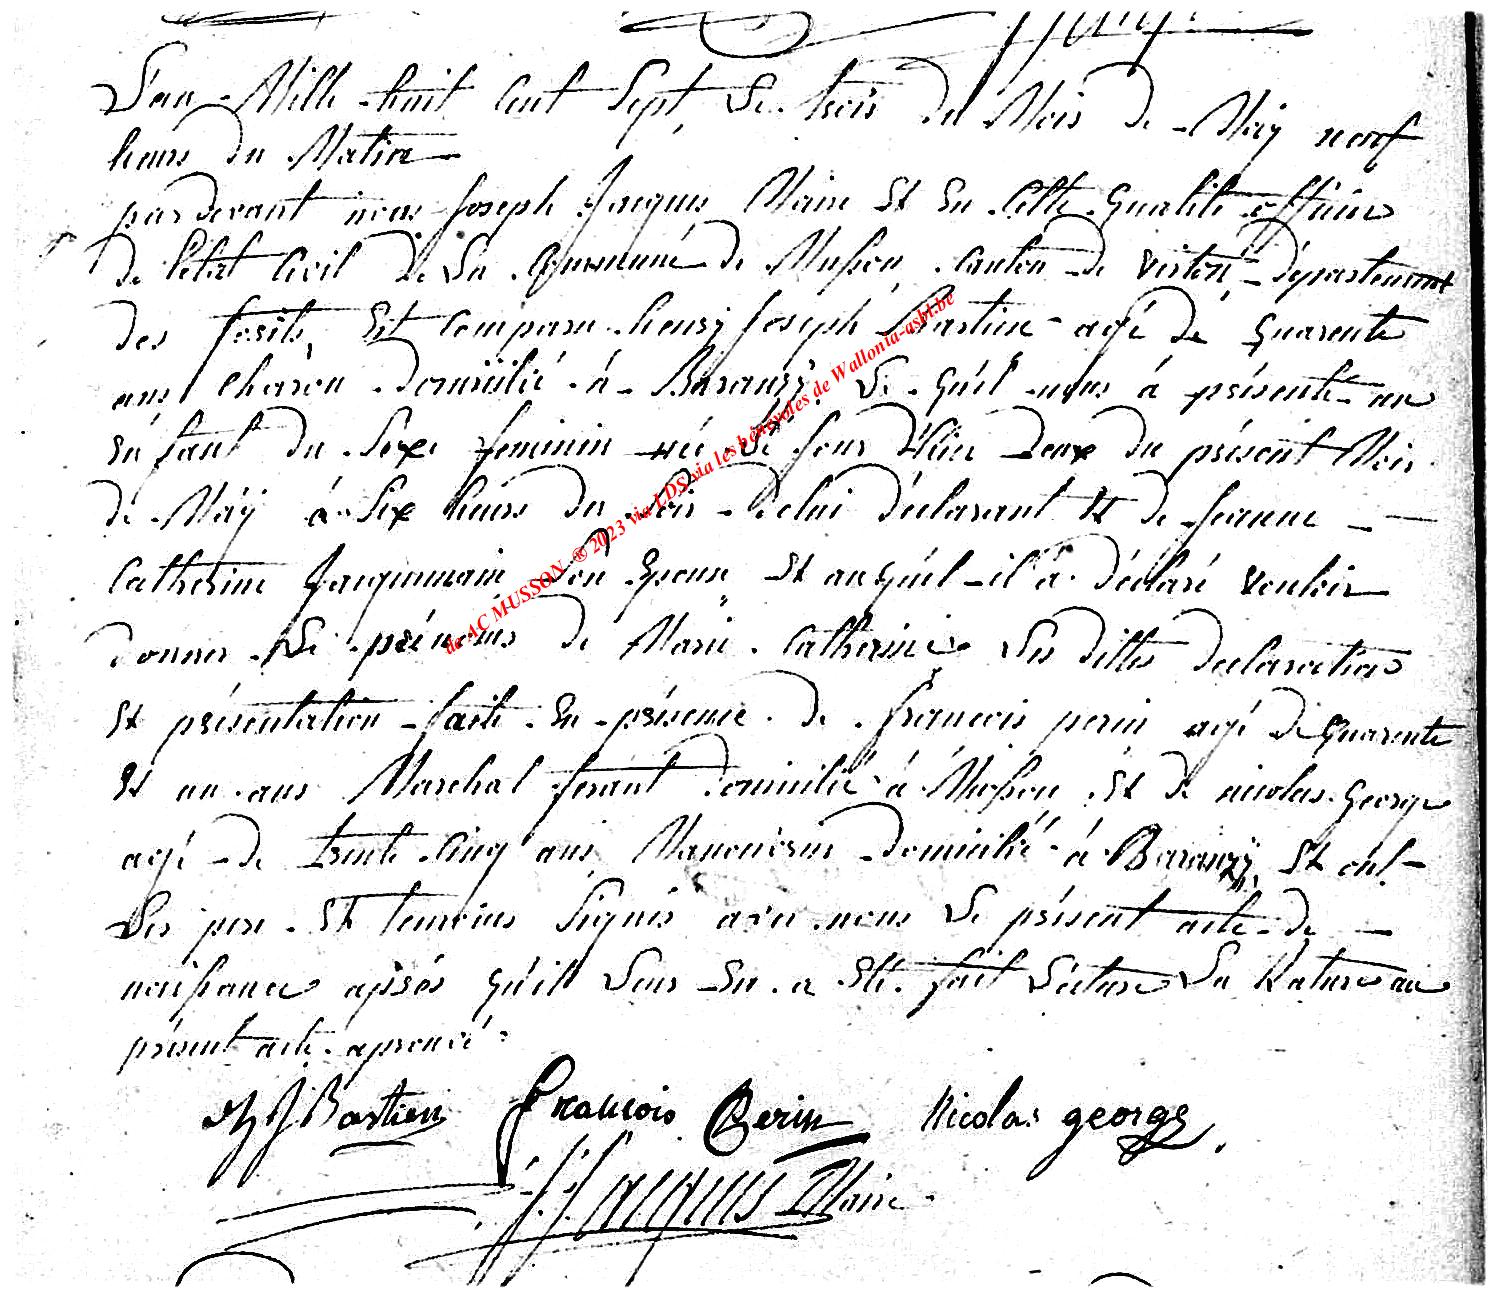 L'an Mille huit Cent Sept, Le trois du Mois de May neuf
heurs du Matin
pardevant nous Joseph Jacques Maire Et En Cette qualité officier
de l'etat Civil De La Commune de Musson, canton de virton, département
des forêts, Est Comparu henry Joseph Bastien agé de quarente
ans Charon domicilié à Baranzÿ Le quel nous à présenté un
Enfant du Sexe feminin née Le Jour d'hier deux du présent Mois
de Mäy à Six heurs du Soir de lui déclarant Et de Jeanne
Catherine Jacquemain son Epouse Et auquel il à déclaré vouloir
donner Le prénoms de Marie Catherine Les dittes declaration
Et présentation faite En présence de francois perin agé de quarente
Et un ans Marchal ferant domicilié à Musson Et de nicolas George
agé de trente Cinq ans Manouvrier domicilié à Baranzÿ, Et ont
Les pere Et temoins Signés avec nous Le présent acte de
naissance après qu'il Leur En a Eté fait Lecture La Rature au
présent acte aprouvé
H J Bastien François Perin Nicolas george
J. Jacques Maire
de AC MUSSON ® 2023 via LDS, via les bénévoles de Wallonia-asbl.be